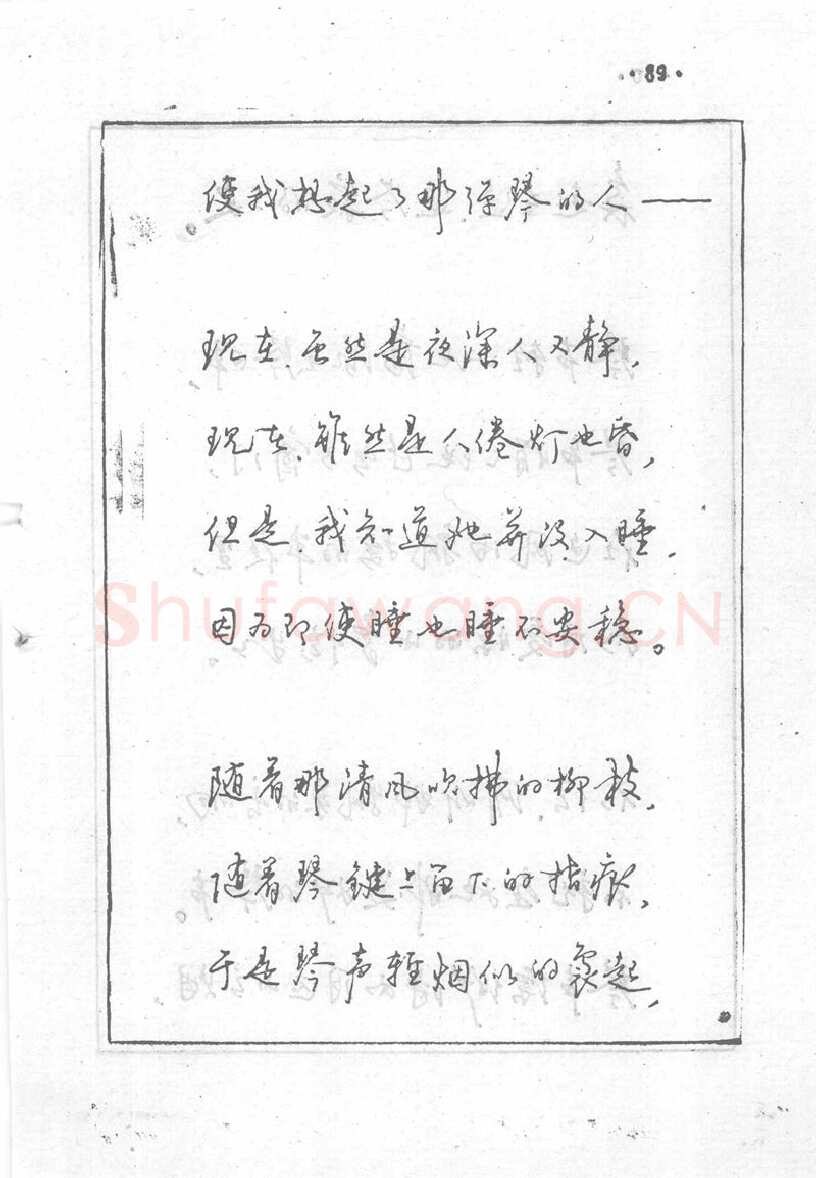 ·89·
使我想起了那弹琴的人——
现在,虽然是夜深人又静,
现在,虽然是人倦灯也昏,
但是,我知道她并没入睡,
因为即使睡也睡不安稳。
Shufawang.CN
随着那清风吹拂的柳枝,
随着琴键上留下的指痕,
于是琴声轻烟似的袅起,